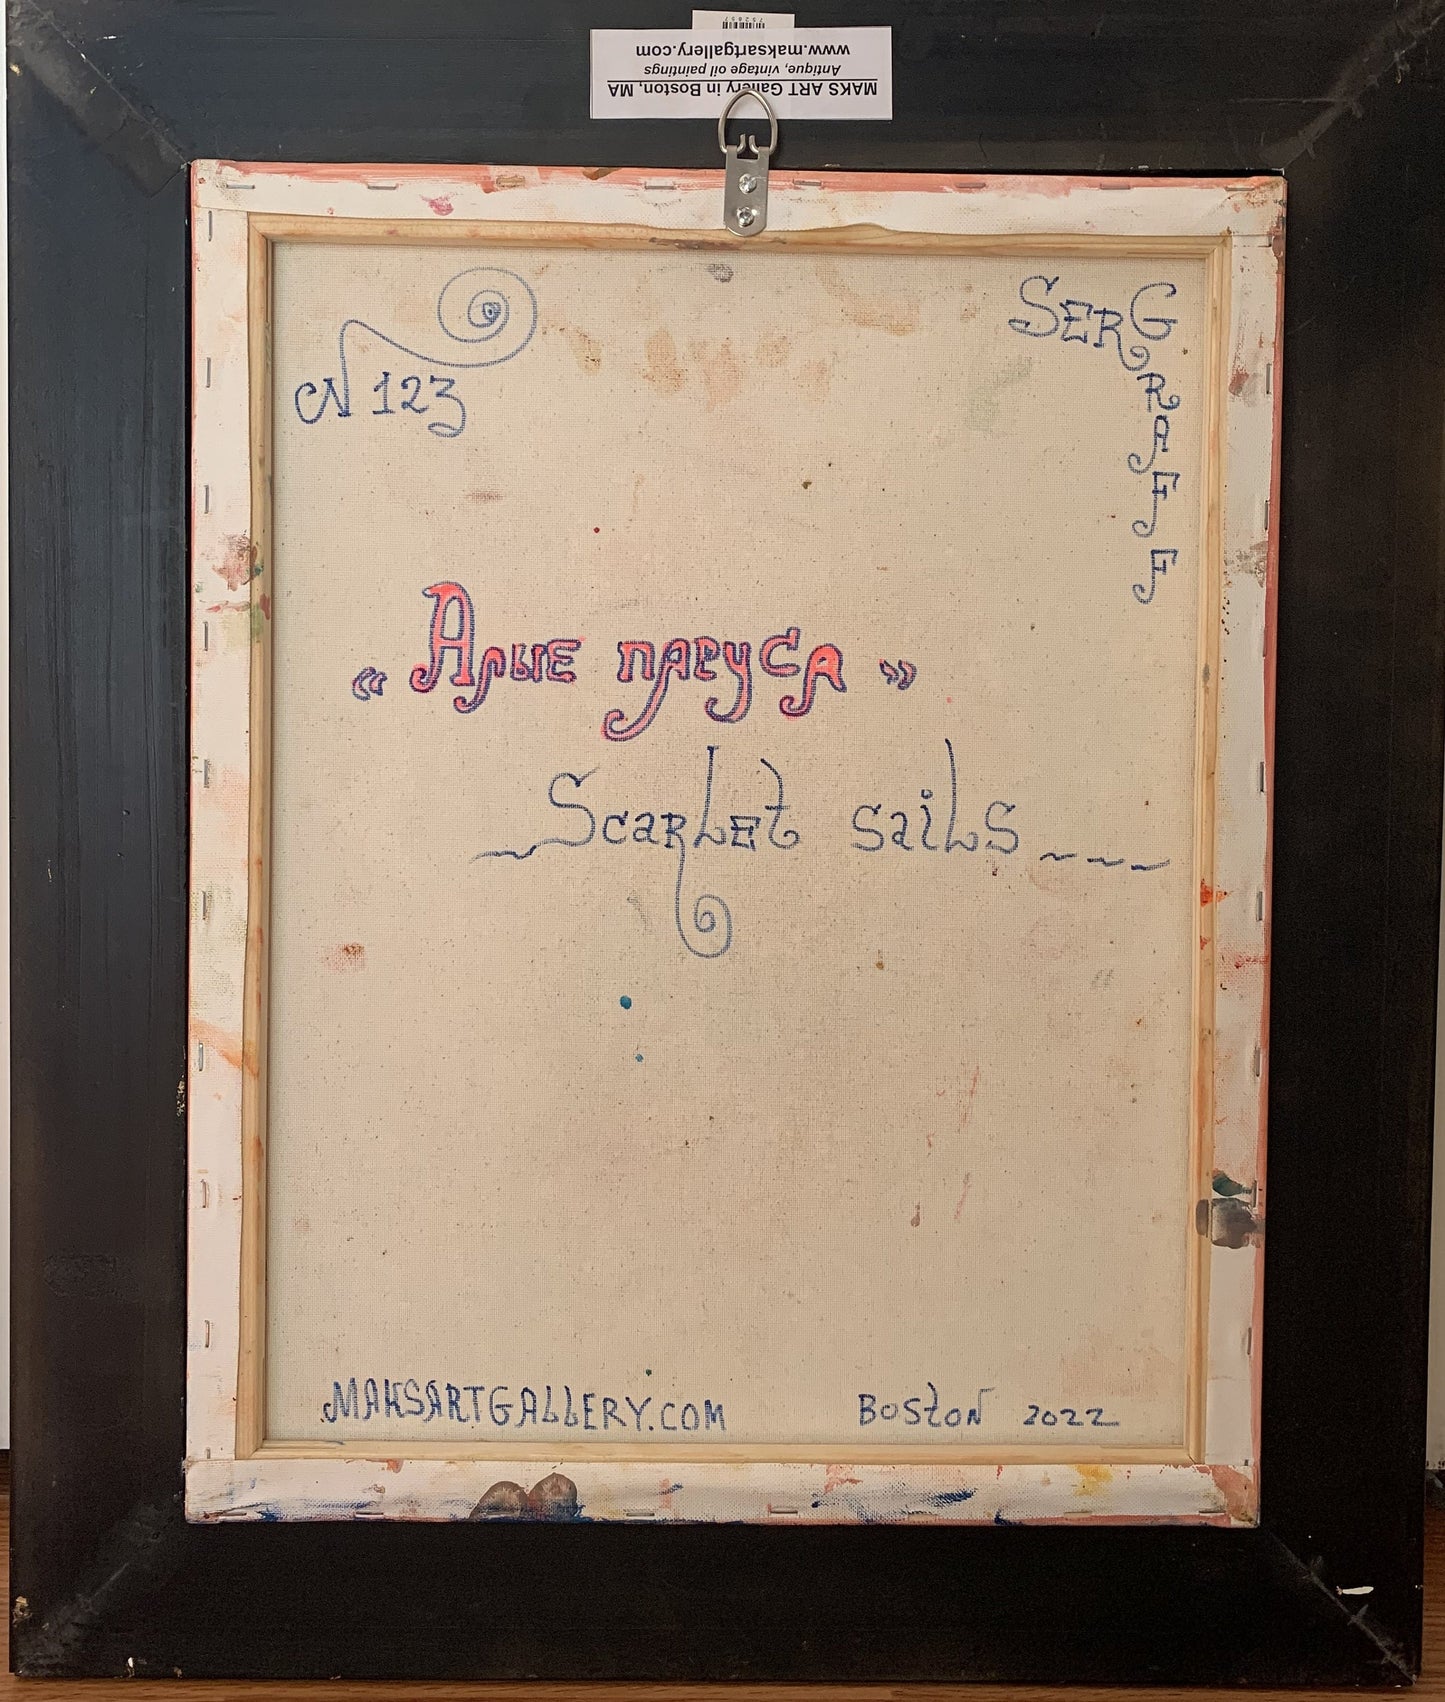 752857
MAKS ART Gallery in Boston, MA
Antique, vintage oil paintings
www.maksartgallery.com
N 123
SERG
GRAFF
« Алые паруса »
Scarlet sails
MAKSARTGALLERY.COM
BOSTON 2022